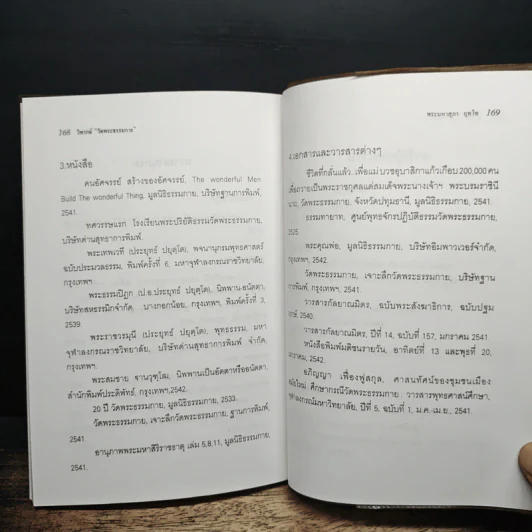 168 วิพากษ์ "วัดพระธรรมกาย"
3.หนังสือ
คนอัศจรรย์ สร้างของอัศจรรย์, The wonderful Men
Build The wonderful Thing, มูลนิธิธรรมกาย, บริษัทฐานการพิมพ์,
2541.
ทศวรรษแรก โรงเรียนพระปริยัติธรรมวัดพระธรรมกาย,
บริษัทด่านสุทธาการพิมพ์.
พระเทพเวที (ประยุทธ์ ปยุตฺโต), พจนานุกรมพุทธศาสตร์
ฉบับประมวลธรรม, พิมพ์ครั้งที่ 6, มหาจุฬาลงกรณราชวิทยาลัย,
กรุงเทพฯ.
พระธรรมปิฎก (ป.อ.ประยุทธ์ ปยุตฺโต), นิพพาน-อนัตตา,
บริษัทสหธรรมิกจำกัด, บางกอกน้อย, กรุงเทพฯ, พิมพ์ครั้งที่ 3,
2539.
พระราชวรมุนี (ประยุทธ์ ปยุตฺโต), พุทธธรรม, มหา
จุฬาลงกรณราชวิทยาลัย, บริษัทด่านสุทธาการพิมพ์ จำกัด,
กรุงเทพฯ.
พระสมชาย ฐานวุฑฺโฒ, นิพพานเป็นอัตตาหรืออนัตตา,
สำนักพิมพ์ประดิพัทธ์, กรุงเทพฯ,2542.
20 ปี วัดพระธรรมกาย, มูลนิธิธรรมกาย, 2533.
วัดพระธรรมกาย, เจาะลึกวัดพระธรรมกาย, ฐานการพิมพ์,
2541
อานุภาพพระมหาสิริราชธาตุ เล่ม 5,8,11, มูลนิธิธรรมกาย,
2541.
พระมหาสุภา อุทโท 169
4.เอกสารและวารสารต่างๆ
ชีวิตที่กลั่นแล้ว, เพื่อแม่ บวชอุบาสิกาแก้วเกือบ 200,000 คน
เพื่อถวายเป็นพระราชกุศลแด่สมเด็จพระนางเจ้าฯ พระบรมราชินี
นาถ, วัดพระธรรมกาย, จังหวัดปทุมธานี, มูลนิธิธรรมกาย, 2541.
ธรรมทายาท, ศูนย์พุทธจักรปฏิบัติธรรมวัดพระธรรมกาย,
2525.
พระคุณพ่อ, มูลนิธิธรรมกาย, บริษัทอิมพาวเวอร์จำกัด,
กรุงเทพฯ, 2542.
วัดพระธรรมกาย, เจาะลึกวัดพระธรรมกาย, บริษัทฐาน
การพิมพ์จำกัด, กรุงเทพฯ, 2541.
วารสารกัลยาณมิตร, ฉบับพระสังฆาธิการ, ฉบับปฐม
ฤกษ์, 2540.
วารสารกัลยาณมิตร, ปีที่ 14, ฉบับที่ 157, มกราคม 2541.
หนังสือพิมพ์มติชนรายวัน, อาทิตย์ที่ 13 และพุธที่ 20,
มกราคม, 2542.
อภิญญา เฟื่องฟูสกุล, ศาสนทัศน์ของชุมชนเมือง
สมัยใหม่ : ศึกษากรณีวัดพระธรรมกาย : วารสารพุทธศาสน์ศึกษา,
จุฬาลงกรณ์มหาวิทยาลัย, ปีที่ 5, ฉบับที่ 1, ม.ค.-เม.ย., 2541.